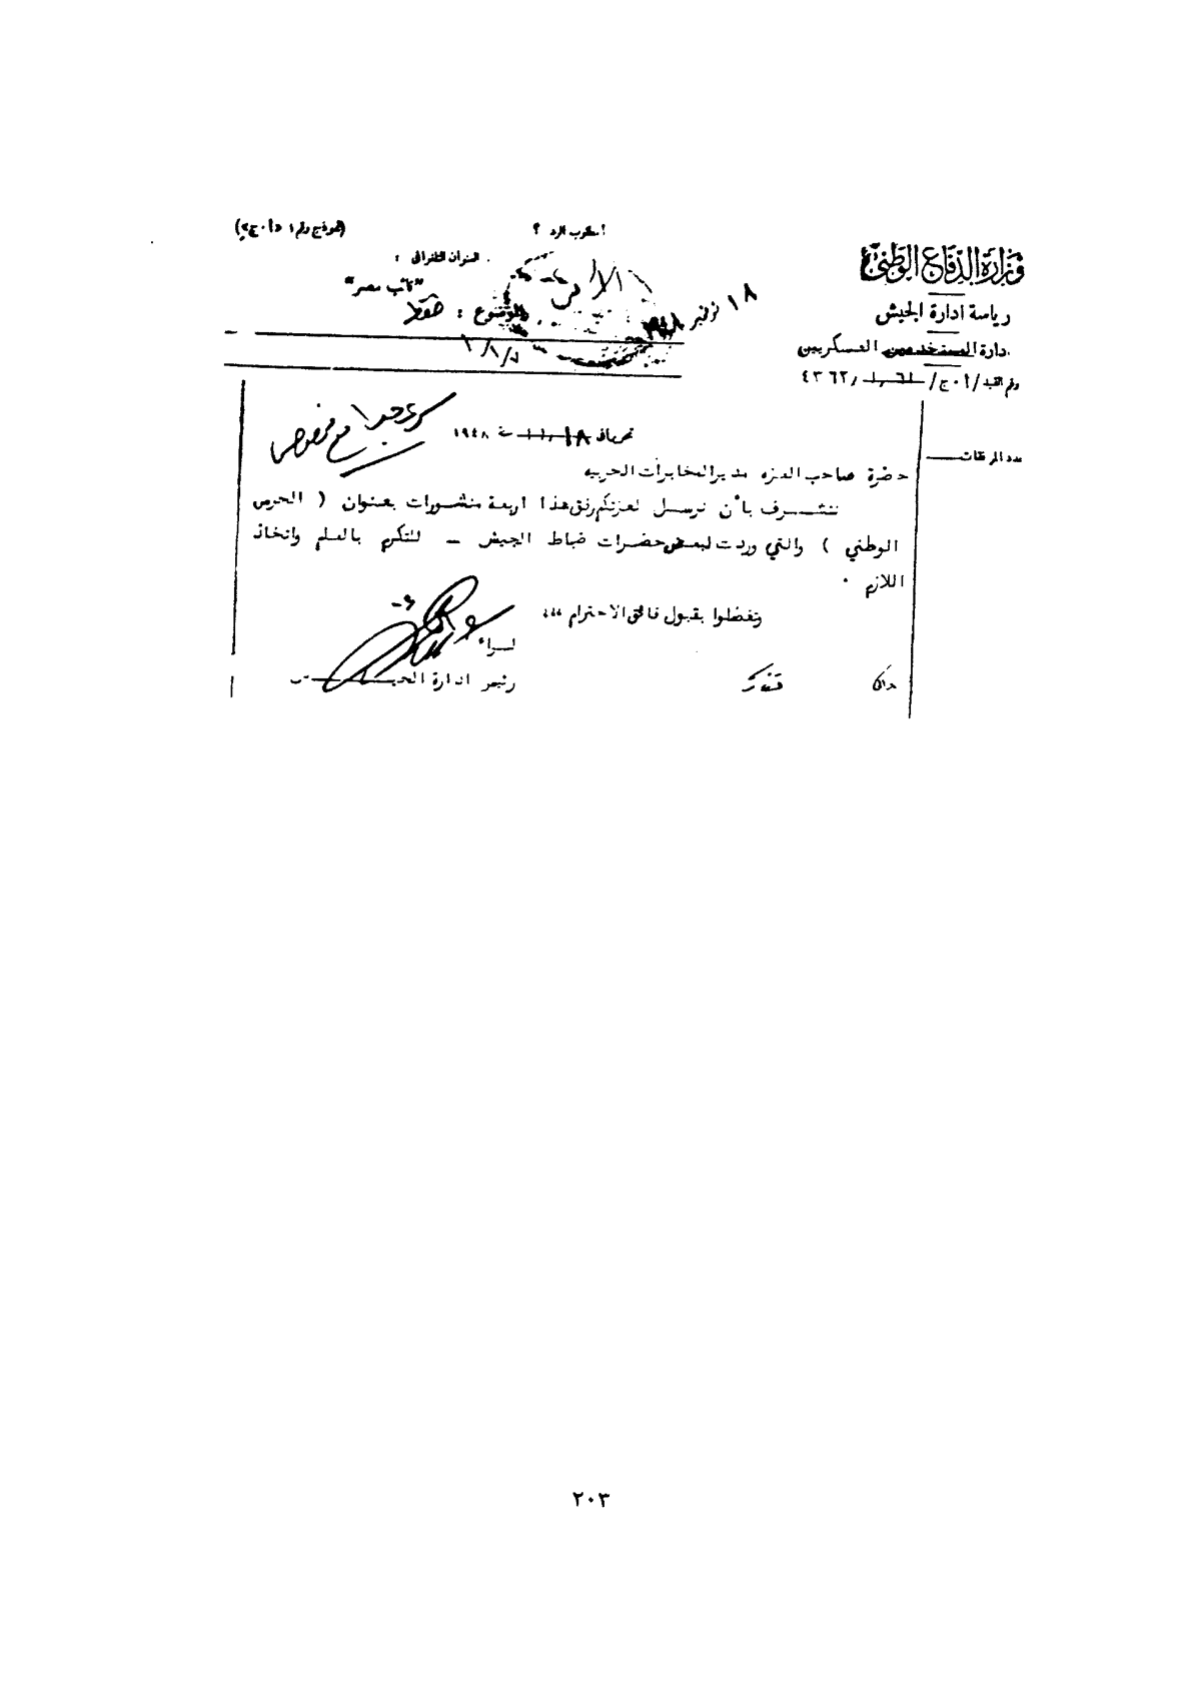 وزارة الدفاع الوطني
رياسة ادارة الجيش
دارة المستخدمين العسكريين
رقم القيد /أ٠ج/ ١,٦١ /٤٣٦٢
عدد المرفقات
أ مكتوب الرد ؟
(نموذج رقم ١ د أ٠ج)
العنوان التلغرافى :
الموضوع :
١٨ نوفمبر ١٩٤٨
سرى جدا
تحريرا فى ١٨ـ١١ سنة ١٩٤٨
حضرة صاحب العزه مدير المخابرات الحربيه
نتشرف بأن نرسل لعزتكم رفق هذا اربعة منشورات بعنوان ( الحرس
الوطني ) والتي وردت لبعض حضرات ضباط الجيش ـ للتكرم بالعلم واتخاذ
اللازم ٠
وتفضلوا بقبول فائق الاحترام ،،،
لواء
رئيس ادارة الجيش
٢٠٣